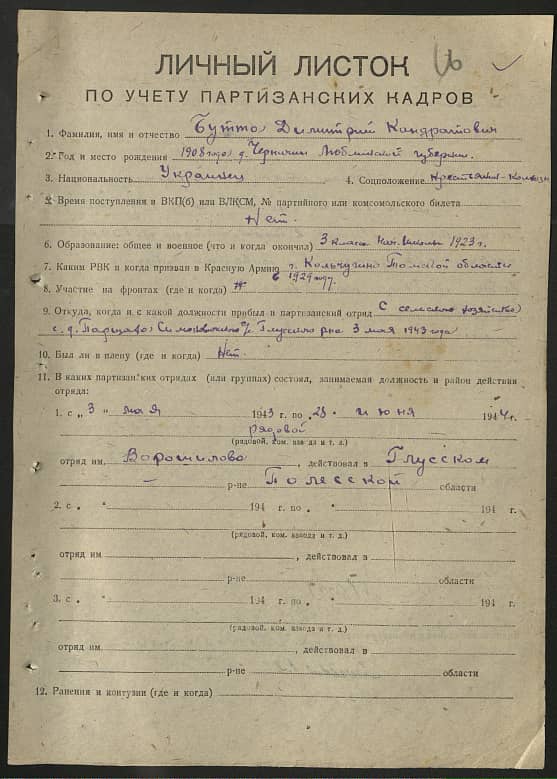 ЛИЧНЫЙ ЛИСТОК
ПО УЧЕТУ ПАРТИЗАНСКИХ КАДРОВ
1. Фамилия, имя и отчество Бутто Димитрий Кондратович
2. Год и место рождения 1908 года д. Черничин Люблинской губернии.
3. Национальность Украинец 4. Соцположение крестьянин-колхозн
5. Время поступления в ВКП(б) или ВЛКСМ, № партийного или комсомольского билета
Нет.
6. Образование: общее и военное (что и когда окончил) 3 класса нач. школы 1923 г.
7. Каким РВК и когда призван в Красную Армию г. Кольчугино Томской области
в 1929 году.
8. Участие на фронтах (где и когда)
9. Откуда, когда и с какой должности прибыл в партизанский отряд С сельского хозяйства
с. д. Симоновского с/с Глусского р-на 3 мая 1943 года
10. Был ли в плену (где и когда) Нет.
11. В каких партизанских отрядах (или группах) состоял, занимаемая должность и район действия
отряда:
1. с „ 3 „ мая 1943 г. по „ 28 „ июня 1944 г.
рядовой
(рядовой, ком. взвода и т. д.)
отряд им. Ворошилова, действовал в Глусском
— р-не Полесской области
2. с „ 194 г. по „ 194 г.
(рядовой, ком. взвода и т. д.)
отряд им , действовал в
р-не области
3. с „ 194 г. по „ 194 г.
(рядовой, ком. взвода и т. д.)
отряд им. , действовал в
р-не области
12. Ранения и контузии (где и когда)